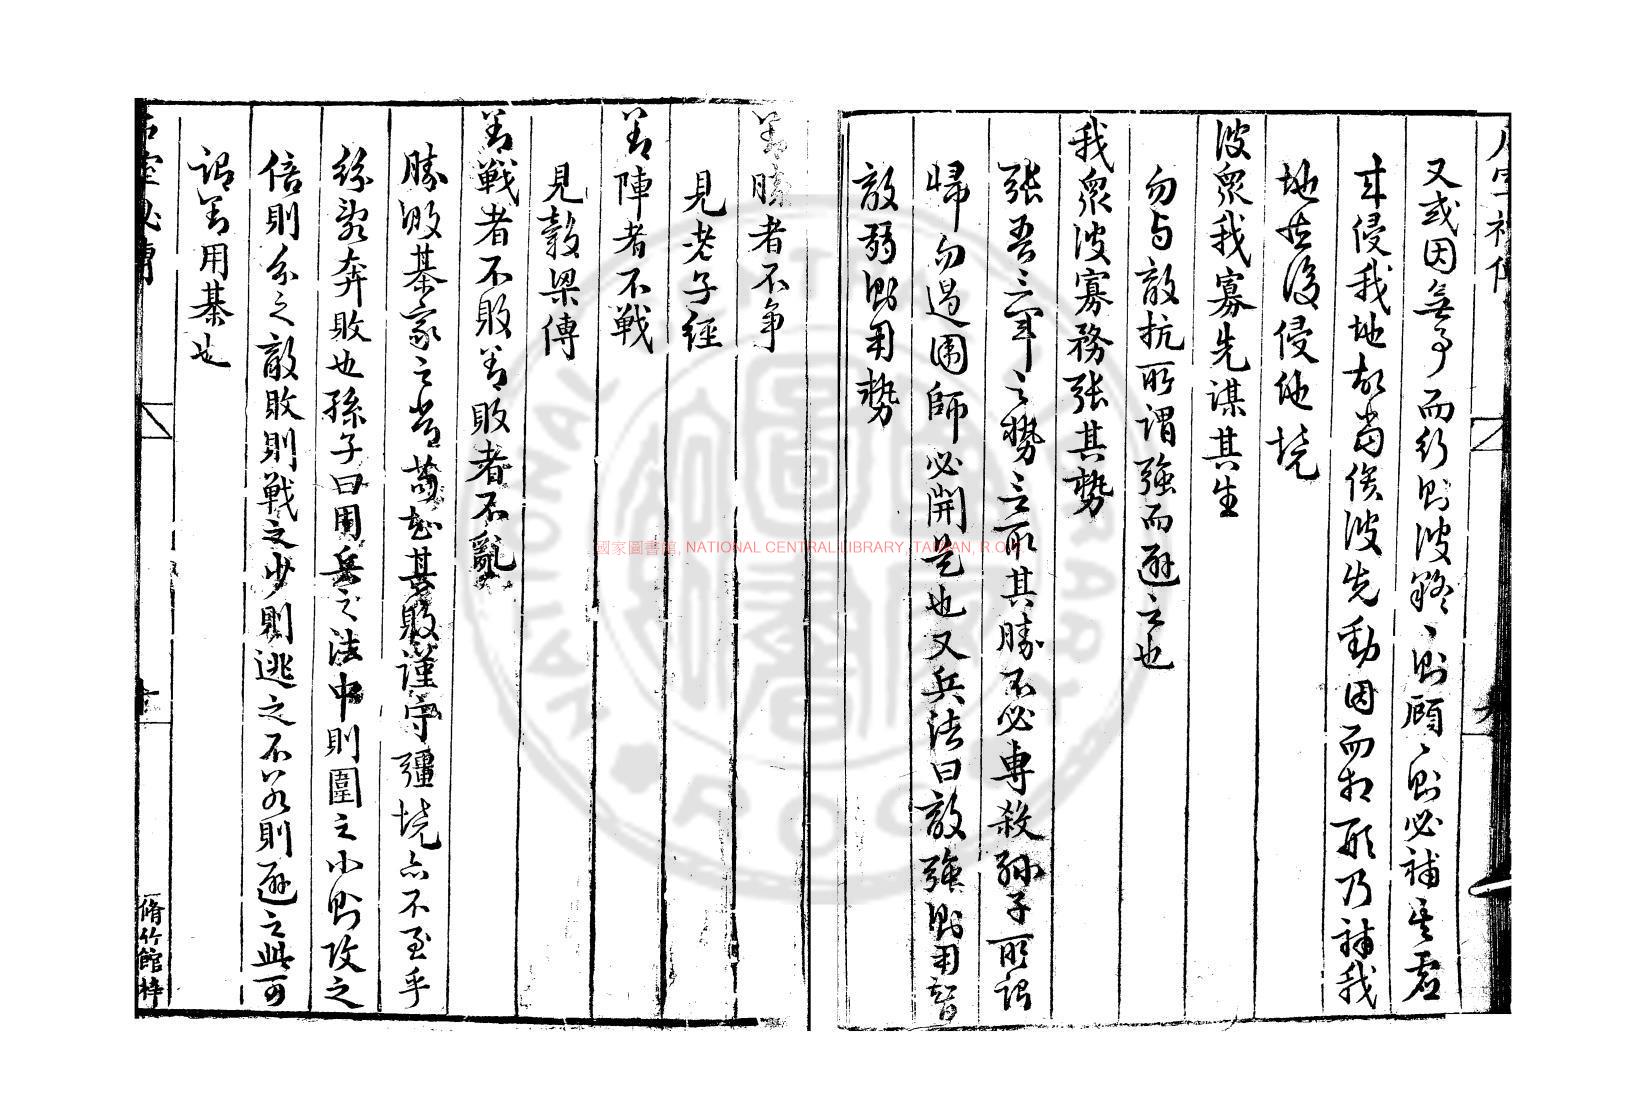 又或因無事而行則彼疑〻則顧〻則必補其虛
來侵我地故當俟彼先動因而相形乃補我
地然後侵他境
彼衆我寡先謀其生
勿与敵抗所謂強而避之也
我衆彼寡務張其勢
張吾三軍之勢言取其勝不必專殺孫子所謂
歸勿遏圍師必開是也又兵法曰敵強則用智
敵弱則用勢
善勝者不爭
見老子經
善陣者不戰
見穀梁傳
善戰者不敗善敗者不亂
勝敗棊家之常苟知其敗謹守疆境亦不至乎
紛亂奔敗也孫子曰用兵之法中則圍之小則攻之
倍則分之敵敗則戰之少則逃之不若則避之此可
謂善用棊也
石室秘傳
脩竹館梓
國家圖書館, NATIONAL CENTRAL LIBRARY, TAIWAN, R.O.C.